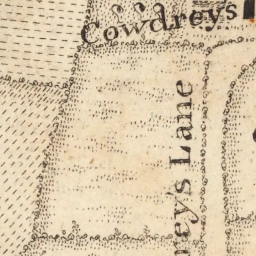 Cowdreys
reys Lane